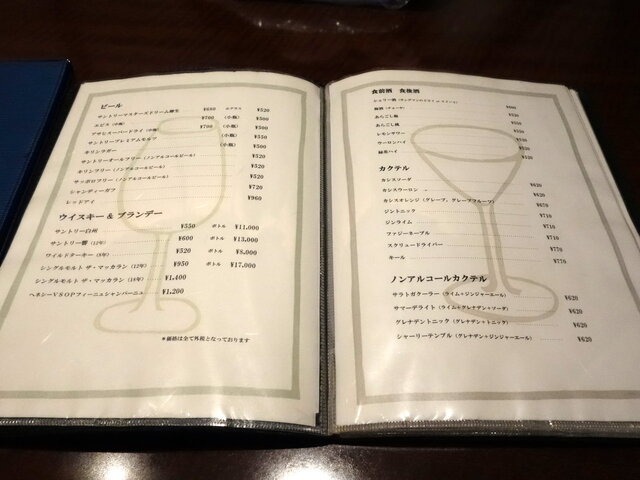 ビール
サントリーマスターズドリーム樽生 ¥680 ¥520
エビス (中瓶) ¥700 (小瓶) ¥500
アサヒスーパードライ (中瓶) ¥700 (小瓶) ¥500
サントリープレミアムモルツ (小瓶) ¥550
キリンラガー (小瓶) ¥500
サントリーオールフリー (ノンアルコールビール) ¥520
キリンフリー (ノンアルコールビール) ¥520
サッポロフリー (ノンアルコールビール) ¥520
シャンディーガフ ¥720
レッドアイ ¥960
ウイスキー & ブランデー
サントリー白州 ¥550 ボトル ¥11,000
サントリー響 (12年) ¥600 ボトル ¥13,000
ワイルドターキー (8年) ¥520 ボトル ¥8,000
シングルモルト ザ・マッカラン (12年) ¥950 ボトル ¥17,000
シングルモルト ザ・マッカラン (18年) ¥1,400
ヘネシーVSOPフィーニュシャンパーニュ ¥1,200
*価格は全て外税となっております
食前酒 食後酒
シェリー酒
梅酒 (チョーヤ) ¥600
あらごし
あらごし桃 ¥550
レモンサワー ¥550
ウーロンハイ
緑茶ハイ
カクテル
カシスソーダ
カシスウーロン ¥620
カシスオレンジ (グレープ、グレープフルーツ) ¥620
ジントニック ¥710
ジンライム ¥710
ファジーネーブル ¥710
スクリュードライバー ¥770
キール ¥770
ノンアルコールカクテル
サラトガクーラー (ライム+ジンジャーエール) ¥620
サマーデライト (ライム+グレナデン+ソーダ) ¥620
グレナデントニック (グレナデン+トニック) ¥620
シャーリーテンプル (グレナデン+ジンジャーエール) ¥620